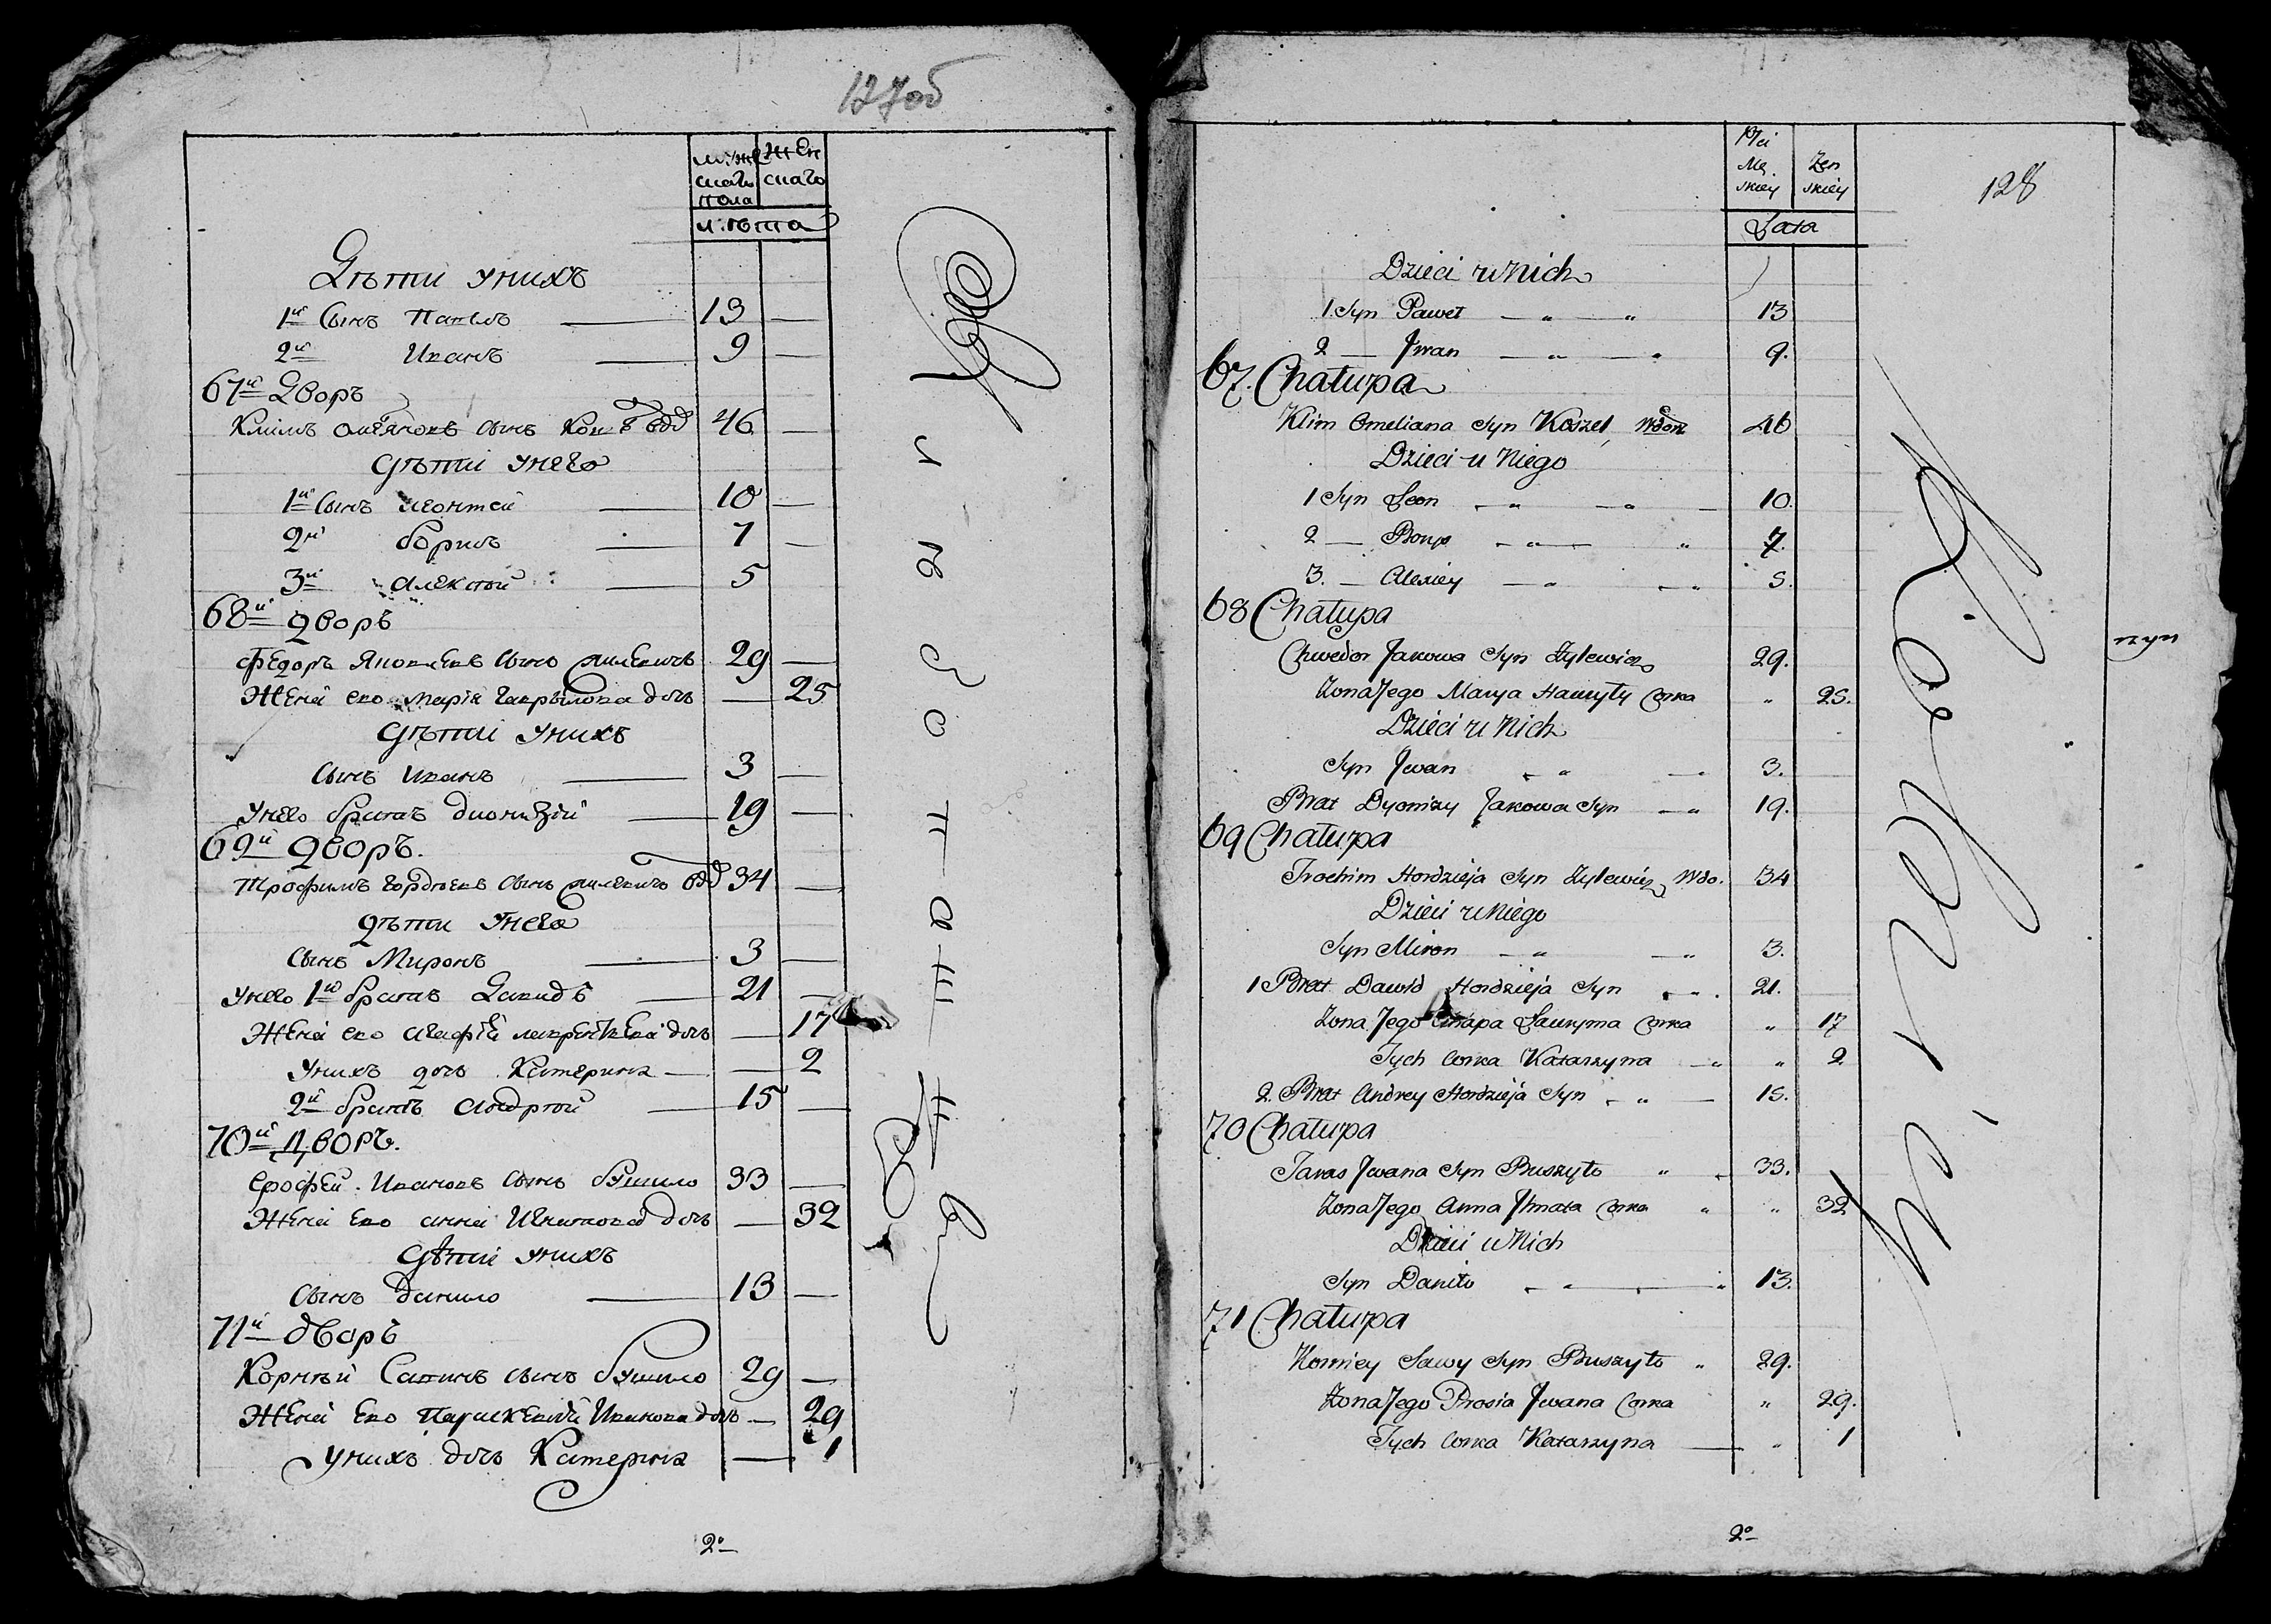 127об
мужескаго пола
женскаго
лѣта
Дѣти унихъ
1й Сынъ Павелъ 13
2й Иванъ 9
67й Дворъ
Климъ Омеляновъ сынъ 46
Дѣти унего
1й Сынъ Леонтей 10
2й Борисъ 7
3й Алексѣй 5
68й Дворъ
Федоръ Яковлевъ сынъ Жилевичъ 29
Жена его Марія Гаврылова дочь 25
Дѣти унихъ
Сынъ Иванъ 3
Унего братъ Дионизій 19
69й Дворъ.
Трофимъ Гордѣевъ сынъ Жилевичъ вдо 34
Дѣти унего
Сынъ Миронъ 3
Унего 1й братъ Давидъ 21
Жена его Агафія дочь 17
Унихъ дочь Катерина 2
2й братъ Андрѣй 15
70й Дворъ.
Ерофей Ивановъ сынъ Бушило 33
Жена его Анна Игнатова дочь 32
Дѣти унихъ
Сынъ Данило 13
71й Дворъ
Корнѣй Савинъ сынъ Бушило 29
Жена его Параскевия Иванова дочь 29
Унихъ дочь Катерина 1
2о
128
Płci
Mę skiey
Żen skiéy
Lata
Dzieci u Nich
1. Syn Paweł — „ — „ 13
2 — Jwan — „ — „ 9.
67. Chałupa
Klim Omeliana Syn Koszel, Wdow 46
Dzieci u Niego
1 Syn Leon — „ — „ — 10.
2 — Borys — „ — „ 7.
3. — Alexiey — „ — „ 5.
68 Chałupa
Chwedor Jakowa Syn Żylewicz 29.
Żona Jego Marya Hawryły Corka „ 25.
Dzieci u Nich
Syn Jwan — „ — 3.
Brat Dyonizy Jakowa Syn — „ 19.
69 Chałupa
Trochim Hordzieja Syn Żylewicz, Wdo. 34
Dzieci u Niego
Syn Miron — „ — „ 3.
1 Brat Dawid Hordzieja Syn — „ 21.
Żona Jego Ahapa Ławryna Corka „ 17
Tych Corka Katarzyna — „ „ 2
2. Brat Andrey Hordzieja Syn — „ — 15.
70 Chałupa
Taras Jwana Syn Buszyło „ 33.
Żona Jego Anna Jhnata Corka „ „ 32
Dzieci u Nich
Syn Daniło — „ — „ 13.
71 Chałupa
Korniey Sawy Syn Buszyło „ 29.
Żona Jego Prosia Jwana Corka „ 29.
Tych Corka Katarzyna — „ 1
2o